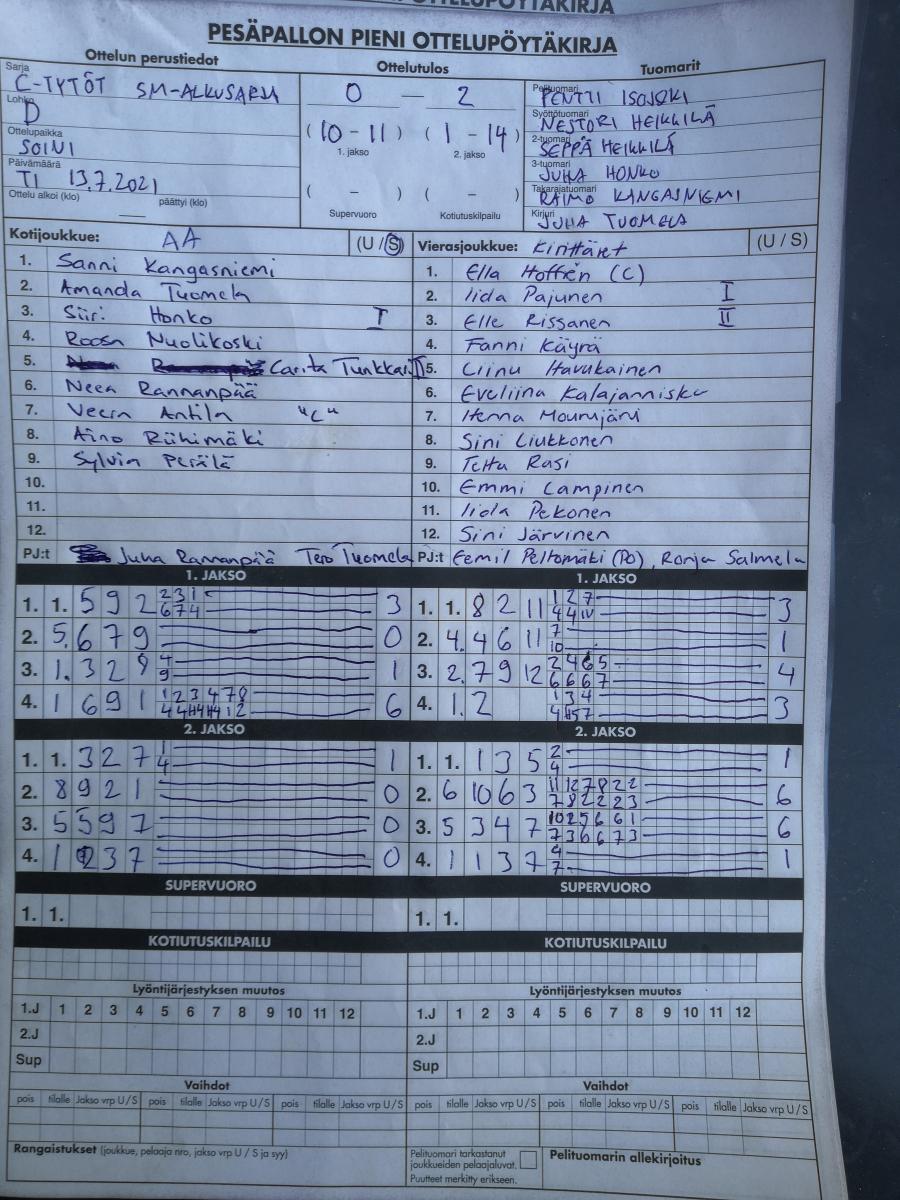 PESÄPALLON PIENI OTTELUPÖYTÄKIRJA
Ottelun perustiedot
Sarja
C-TYTÖT SM-ALKUSARJA
Lohko
D
Ottelupaikka
SOINI
Päivämäärä
TI 13.7.2021
Ottelu alkoi (klo) — päättyi (klo)
Ottelutulos
0 — 2
(10 - 11) (1 - 14)
1. jakso 2. jakso
( - ) ( - )
Supervuoro Kotiutuskilpailu
Tuomarit
Pelituomari
PENTTI ISOJOKI
Syöttötuomari
NESTORI HEIKKILÄ
2-tuomari
SEPPÄ HEIKKILÄ
3-tuomari
JUHA HONKO
Takarajatuomari
RAIMO KANGASNIEMI
Kirjuri
JUHA TUOMELA
Kotijoukkue: AA (U / S)
1. Sanni Kangasniemi
2. Amanda Tuomela
3. Siiri Honko I
4. Roosa Nuolikoski
5. Carita Tunkkari II
6. Neea Rannanpää
7. Veera Antila "C"
8. Aino Riihimäki
9. Sylvia Perälä
10.
11.
12.
PJ:t Juha Rannanpää Tero Tuomela
Vierasjoukkue: Kirittäret (U / S)
1. Ella Hoffrén (C)
2. Iida Pajunen I
3. Elle Rissanen II
4. Fanni Käyrä
5. Liinu Havukainen
6. Eveliina Kalajannisko
7. Henna Mourujärvi
8. Sini Liukkonen
9. Tetta Rasi
10. Emmi Lampinen
11. Iida Pekonen
12. Sini Järvinen
PJ:t Eemil Peltomäki (PO), Ronja Salmela
1. JAKSO
1. 1. 5 9 2 2 3 1 3
6 7 4
2. 5. 6 7 9 0
3. 1. 3 2 8 4 1
9
4. 1 6 9 1 1 2 3 4 7 8 6
2. JAKSO
1. 1. 3 2 7 1 1
4
2. 8 9 2 1 0
3. 5 5 9 7 0
4. 1 2 3 7 0
SUPERVUORO
1. 1.
KOTIUTUSKILPAILU
1. JAKSO
1. 1. 8 2 11 1 2 7 3
4 4 10
2. 4. 4 6 11 7 1
10
3. 2. 7 9 12 2 4 6 5 4
6 6 6 7
4. 1. 2 1 3 4 3
2. JAKSO
1. 1. 1 3 5 2 1
4
2. 6 10 6 3 11 12 7 8 2 2 6
7 8 2 2 2 3
3. 5 3 4 7 10 2 5 6 6 1 6
7 3 6 6 7 3
4. 1 1 3 7 4 1
7
SUPERVUORO
1. 1.
KOTIUTUSKILPAILU
Lyöntijärjestyksen muutos
1.J 1 2 3 4 5 6 7 8 9 10 11 12
2.J
Sup
Vaihdot
pois tilalle Jakso vrp U / S pois tilalle Jakso vrp U / S pois tilalle Jakso vrp U / S
Rangaistukset (joukkue, pelaaja nro, jakso vrp U / S ja syy)
Lyöntijärjestyksen muutos
1.J 1 2 3 4 5 6 7 8 9 10 11 12
2.J
Sup
Vaihdot
pois tilalle Jakso vrp U / S pois tilalle Jakso vrp U / S pois tilalle Jakso vrp U / S
Pelituomari tarkastanut
joukkueiden pelaajaluvat.
Puutteet merkitty erikseen.
Pelituomarin allekirjoitus